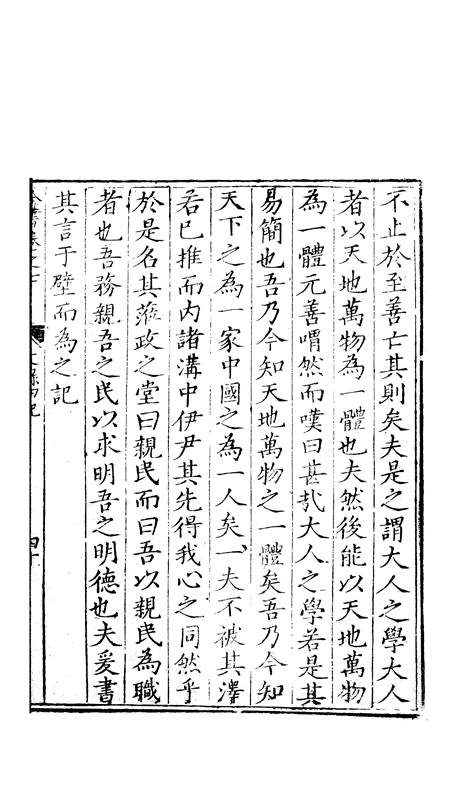 不止於至善亡其則矣夫是之謂大人之學大人
者以天地萬物為一體也夫然後能以天地萬物
為一體元善喟然而嘆曰甚哉大人之學若是其
易簡也吾乃今知天地萬物之一體矣吾乃今知
天下之為一家中國之為一人矣一夫不被其澤
若已推而内諸溝中伊尹其先得我心之同然乎
於是名其蒞政之堂曰親民而曰吾以親民為職
者也吾務親吾之民以求明吾之明德也夫爰書
其言于壁而為之記